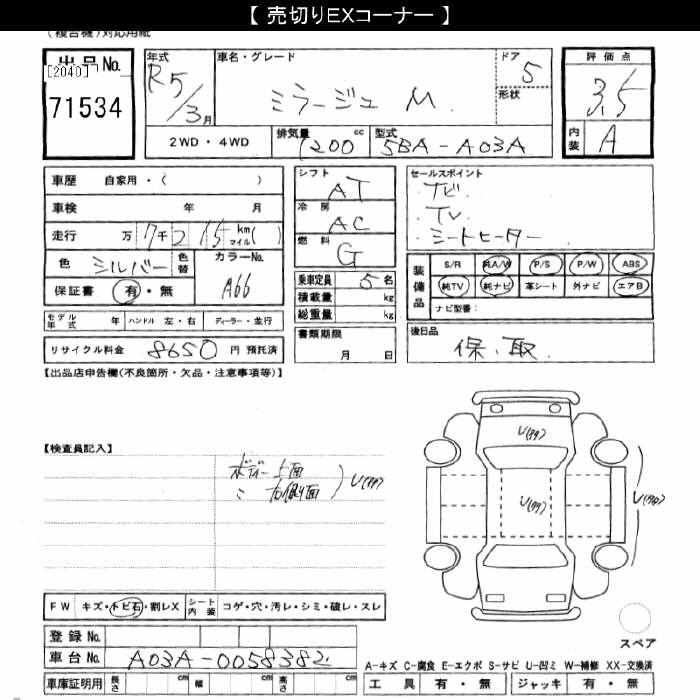 【 売切りEXコーナー 】
(複合機)対応用紙
出品No.
[2040]
71534
年式
R5/3月
車名・グレード
ミラージュ M
ドア
5
形状
評価点
3.5
内装
A
2WD・4WD
排気量 cc
1200
型式
5BA-A03A
車歴 自家用・( )
車検 年 月
走行 万 7千 2 15 km マイル( )
色 シルバー 色替
カラーNo.
A66
保証書 有・無
シフト
AT
冷房
AC
燃料
G
乗車定員 5 名
積載量 kg
総重量 kg
セールスポイント
・ナビ
・TV
・シートヒーター
装備品
S/R 純A/W P/S P/W ABS
純TV 純ナビ 革シート 外ナビ エアB
ナビ型番:
モデル年式 年 ハンドル 左・右 ディーラー・並行
リサイクル料金 8650 円 預託済
書類期限
月 日
後日品
保、取
【出品店申告欄(不良箇所・欠品・注意事項等)】
【検査員記入】
ボディー上面
〃 右側面
U(アタ)
U(アタ)
U(アタ)
U(アタ)
FW キズ・トビ石・割レX シート内装 コゲ・穴・汚レ・シミ・破レ・スレ
スペア
登録No.
車台No. A03A-0058382
A-キズ C-腐食 E-エクボ S-サビ U-凹ミ W-補修 XX-交換済
車庫証明用 長さ 幅 高さ
工具 有・無 ジャッキ 有・無